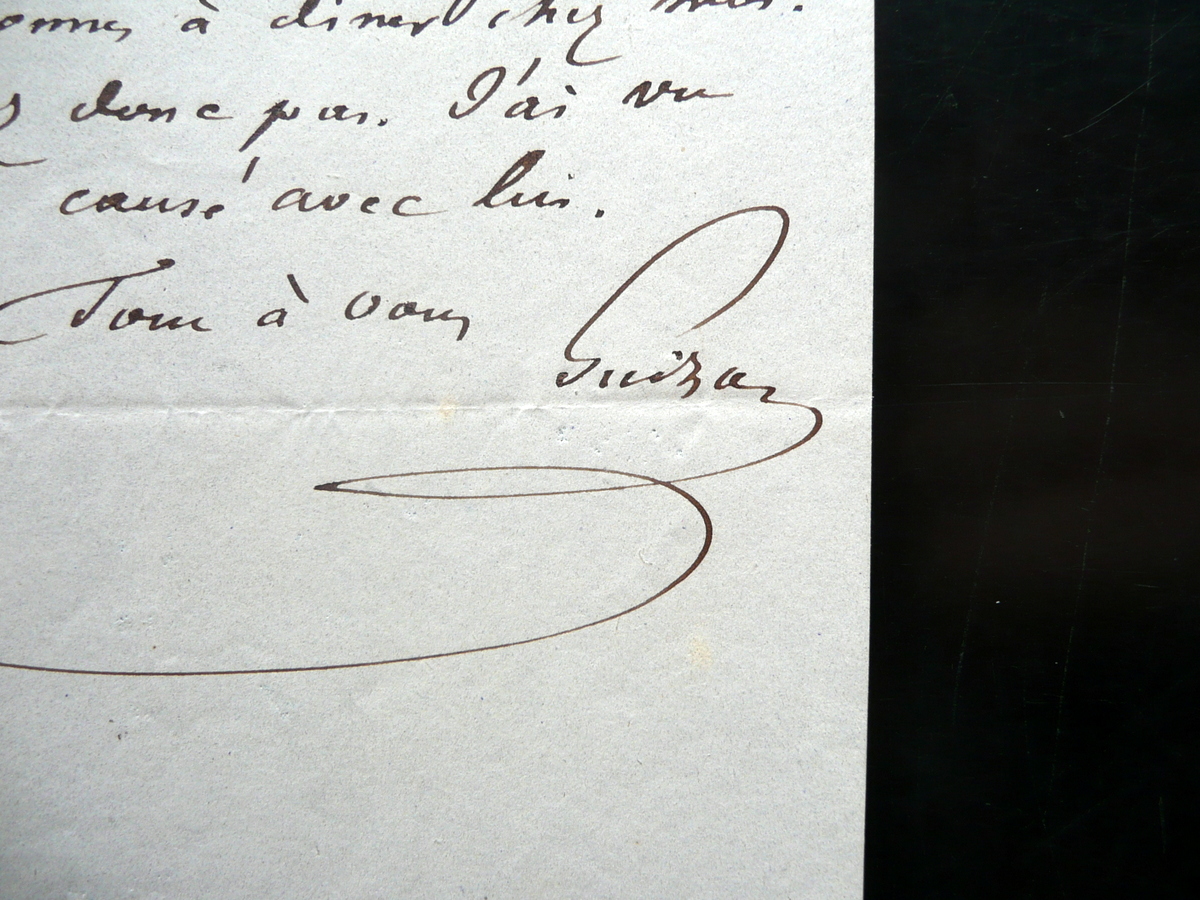 à diner chez moi.
donc pas. J'ai vu
causé avec lui.
Tout à vous
Guizot